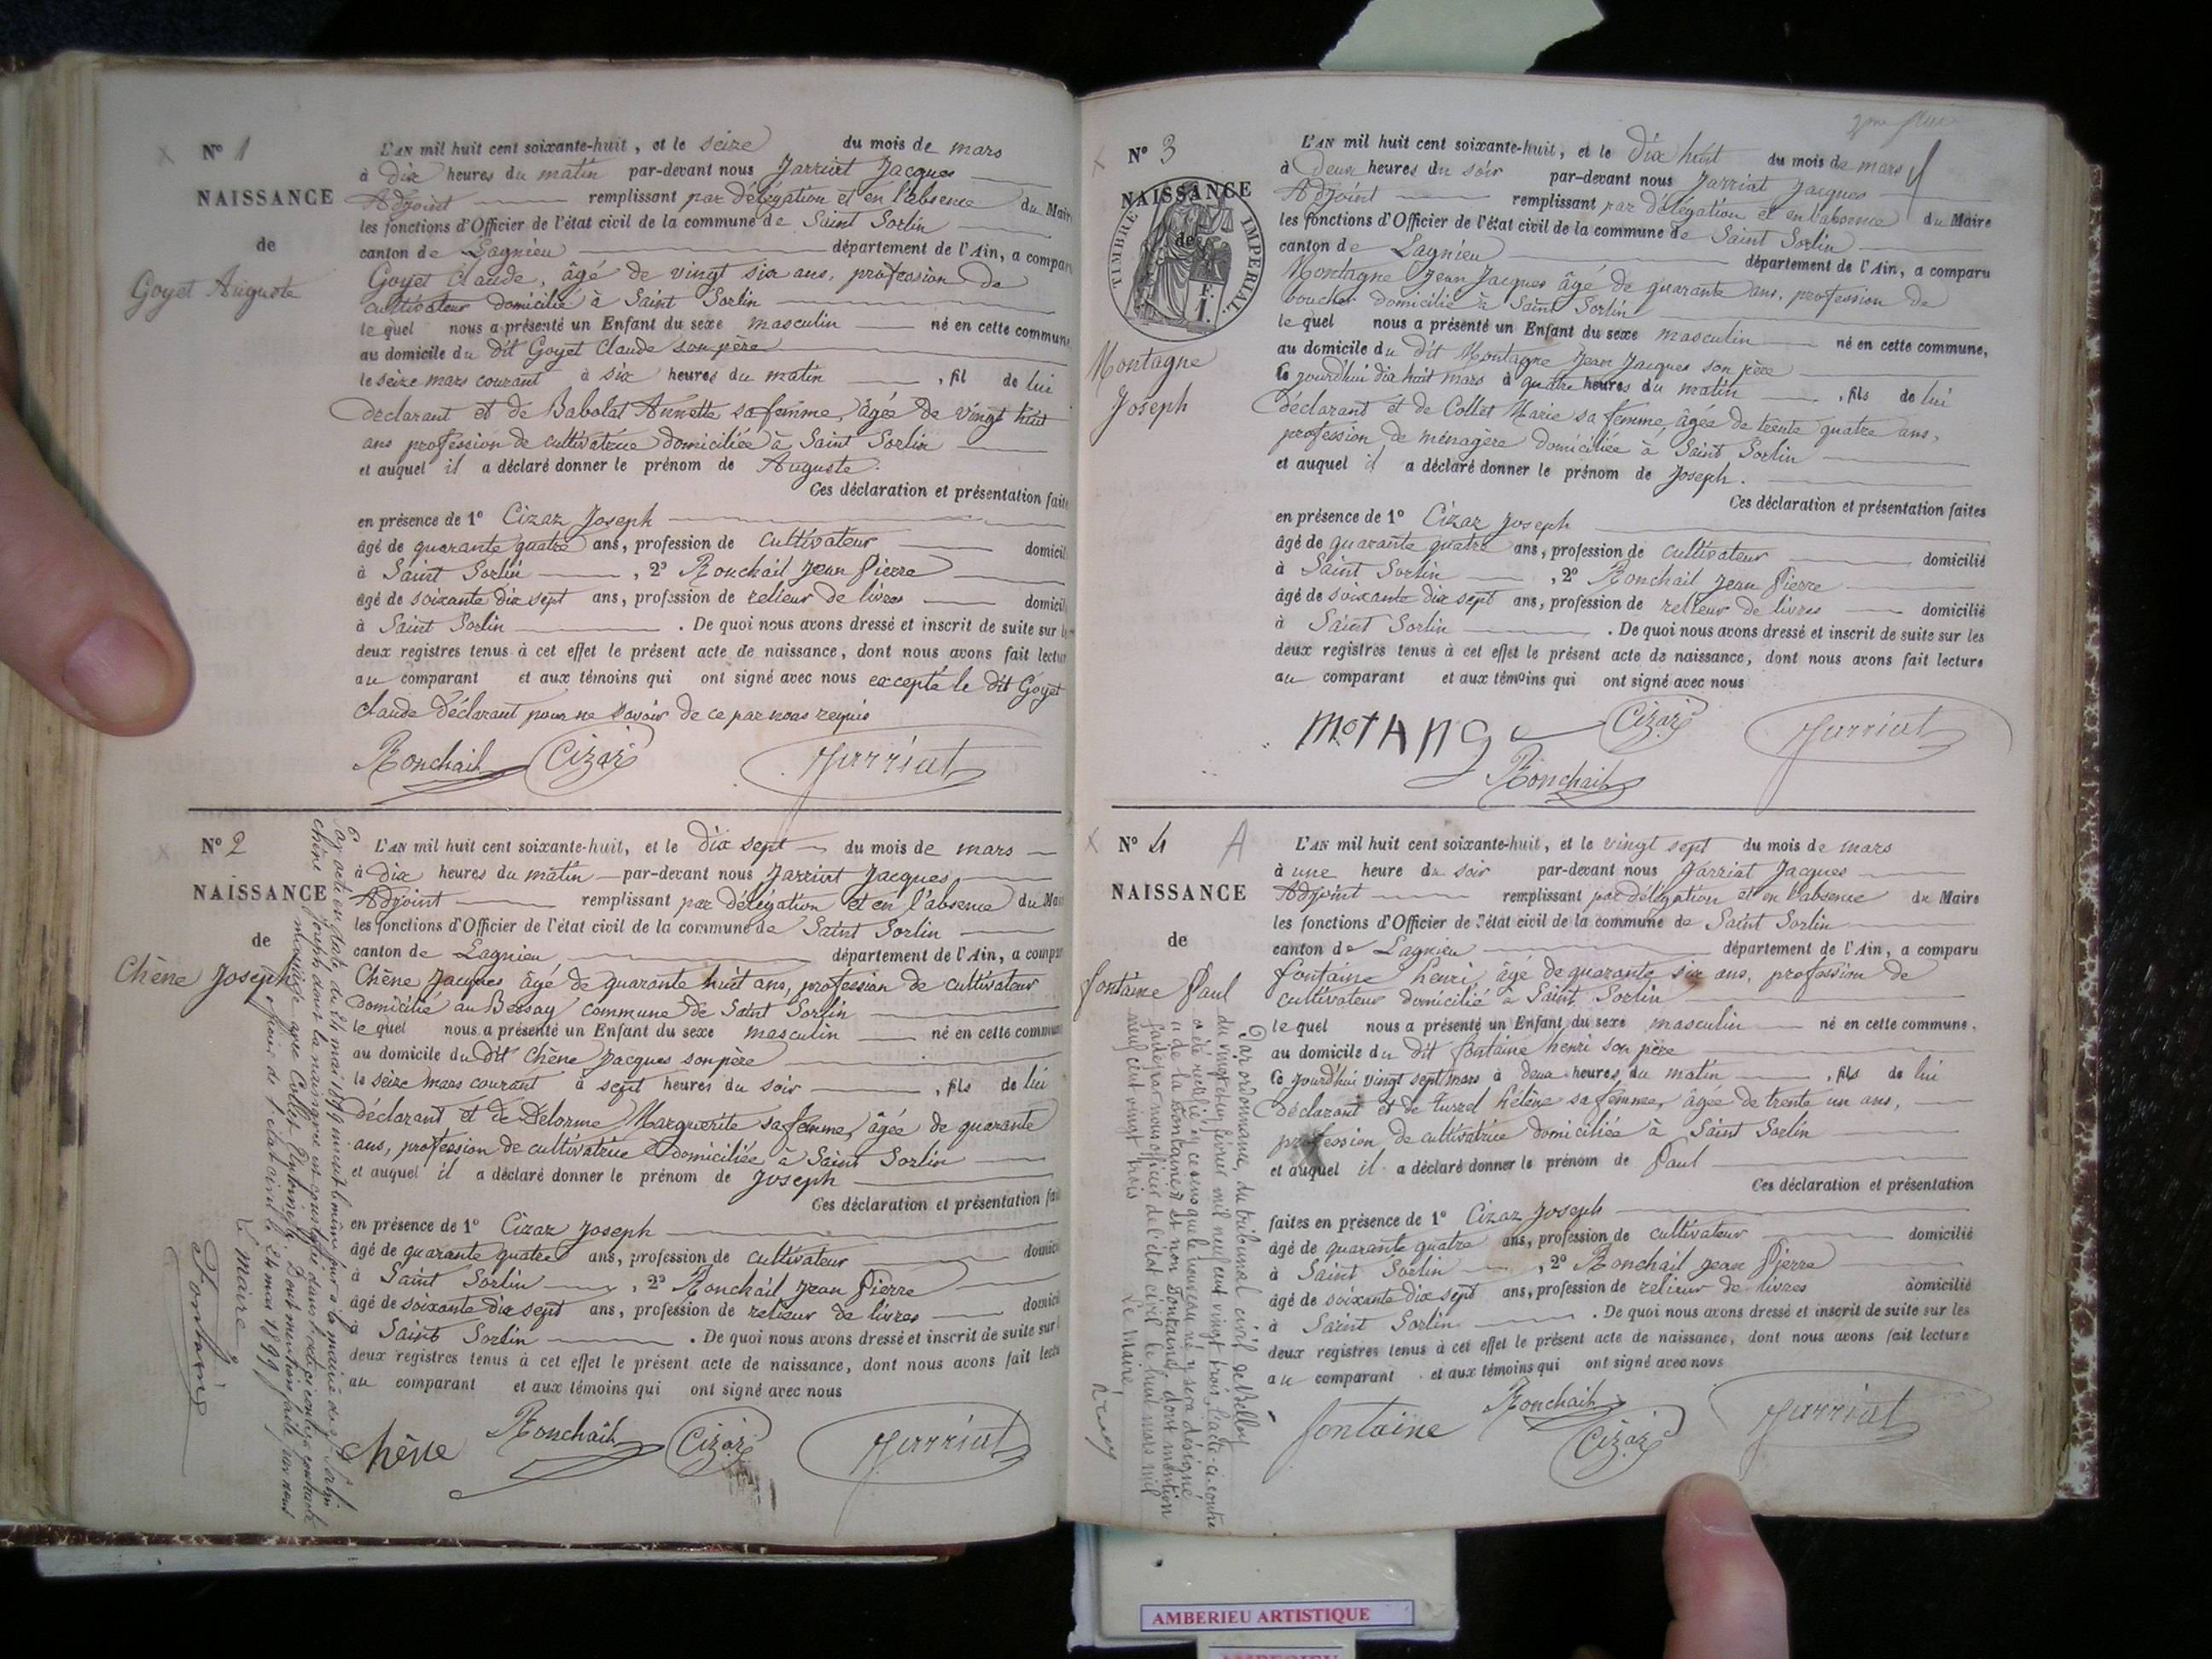 N° 1
NAISSANCE
de
Goyet Auguste
L'AN mil huit cent soixante-huit, et le seize du mois de mars
à dix heures du matin par-devant nous Jarriat Jacques
Adjoint remplissant par délégation et en l'absence du Mair
les fonctions d'Officier de l'état civil de la commune de Saint Sorlin
canton de Lagnieu département de l'Ain, a compar
Goyet Claude, âgé de vingt six ans, profession de
cultivateur domicilié à Saint Sorlin
le quel nous a présenté un Enfant du sexe masculin né en cette commun
au domicile du dit Goyet Claude son père
le seize mars courant à six heures du matin , fil de lui
déclarant et de Babolat Annette sa femme, âgée de vingt huit
ans profession de cultivatrice domiciliée à Saint Sorlin
et auquel il a déclaré donner le prénom de Auguste.
Ces déclaration et présentation fait
en présence de 1° Cizaz Joseph
âgé de quarante quatre ans, profession de cultivateur domicil
à Saint Sorlin , 2° Ronchail Jean Pierre
âgé de soixante dix sept ans, profession de relieur de livres domicil
à Saint Sorlin . De quoi nous avons dressé et inscrit de suite sur l
deux registres tenus à cet effet le présent acte de naissance, dont nous avons fait lectur
au comparant et aux témoins qui ont signé avec nous excepté le dit Goyet
claude déclarant pour ne savoir de ce par nous requis
Ronchail Cizaz Jarriat
N° 2
NAISSANCE
de
Chêne Joseph
Par acte en date du 24 mai 1899
Le Maire
Fontaine
L'AN mil huit cent soixante-huit, et le dix sept du mois de mars
à dix heures du matin par-devant nous Jarriat Jacques
Adjoint remplissant par délégation et en l'absence du Mai
les fonctions d'Officier de l'état civil de la commune de Saint Sorlin
canton de Lagnieu département de l'Ain, a compar
Chêne Jacques âgé de quarante huit ans, profession de cultivateur
domicilié au Bessay commune de Saint Sorlin
le quel nous a présenté un Enfant du sexe masculin né en cette commun
au domicile du dit Chêne Jacques son père
le seize mars courant à sept heures du soir , fils de lui
déclarant et de Delorme Marguerite sa femme, âgée de quarante
ans, profession de cultivatrice domiciliée à Saint Sorlin
et auquel il a déclaré donner le prénom de Joseph
Ces déclaration et présentation fai
en présence de 1° Cizaz Joseph
âgé de quarante quatre ans, profession de cultivateur domici
à Saint Sorlin , 2° Ronchail Jean Pierre
âgé de soixante dix sept ans, profession de relieur de livres domici
à Saint Sorlin . De quoi nous avons dressé et inscrit de suite sur
deux registres tenus à cet effet le présent acte de naissance, dont nous avons fait lectu
au comparant et aux témoins qui ont signé avec nous
Chêne Ronchail Cizaz Jarriat
N° 3
NAISSANCE
de
TIMBRE IMPERIAL
Montagne
Joseph
L'AN mil huit cent soixante-huit, et le dix huit du mois de mars
à deux heures du soir par-devant nous Jarriat Jacques
Adjoint remplissant par délégation et en l'absence du Maire
les fonctions d'Officier de l'état civil de la commune de Saint Sorlin
canton de Lagnieu département de l'Ain, a comparu
Montagne Jean Jacques âgé de quarante ans, profession de
boucher domicilié à Saint Sorlin
le quel nous a présenté un Enfant du sexe masculin né en cette commune,
au domicile du dit Montagne Jean Jacques son père
Ce jourd'hui dix huit mars à quatre heures du matin , fils de lui
déclarant et de Collet Marie sa femme, âgée de trente quatre ans,
profession de ménagère domiciliée à Saint Sorlin
et auquel il a déclaré donner le prénom de Joseph.
Ces déclaration et présentation faites
en présence de 1° Cizaz Joseph
âgé de quarante quatre ans, profession de cultivateur domicilié
à Saint Sorlin , 2° Ronchail Jean Pierre
âgé de soixante dix sept ans, profession de relieur de livres domicilié
à Saint Sorlin . De quoi nous avons dressé et inscrit de suite sur les
deux registres tenus à cet effet le présent acte de naissance, dont nous avons fait lecture
au comparant et aux témoins qui ont signé avec nous
Cizaz Jarriat
Ronchail
N° 4 A
NAISSANCE
de
fontaine Paul
Par ordonnance du tribunal civil de Belley
du vingt et un février mil neuf cent vingt trois, l'acte ci-contre
a été rectifié en ce sens que le nouveau né y sera désigné
neuf cent vingt trois Le Maire,
L'AN mil huit cent soixante-huit, et le vingt sept du mois de mars
à une heure du soir par-devant nous Jarriat Jacques
Adjoint remplissant par délégation et en l'absence du Maire
les fonctions d'Officier de l'état civil de la commune de Saint Sorlin
canton de Lagnieu département de l'Ain, a comparu
fontaine henri âgé de quarante six ans, profession de
cultivateur domicilié à Saint Sorlin
le quel nous a présenté un Enfant du sexe masculin né en cette commune.
au domicile du dit fontaine henri son père
Ce jourd'hui vingt sept mars à deux heures du matin , fils de lui
déclarant et de turrel hélène sa femme, âgée de trente un ans,
profession de cultivatrice domiciliée à Saint Sorlin
et auquel il a déclaré donner le prénom de Paul
Ces déclaration et présentation
faites en présence de 1° Cizaz Joseph
âgé de quarante quatre ans, profession de cultivateur domicilié
à Saint Sorlin , 2° Ronchail Jean Pierre
âgé de soixante dix sept ans, profession de relieur de livres domicilié
à Saint Sorlin . De quoi nous avons dressé et inscrit de suite sur les
deux registres tenus à cet effet le présent acte de naissance, dont nous avons fait lecture
au comparant et aux témoins qui ont signé avec nous
fontaine Ronchail Cizaz Jarriat
AMBERIEU ARTISTIQUE